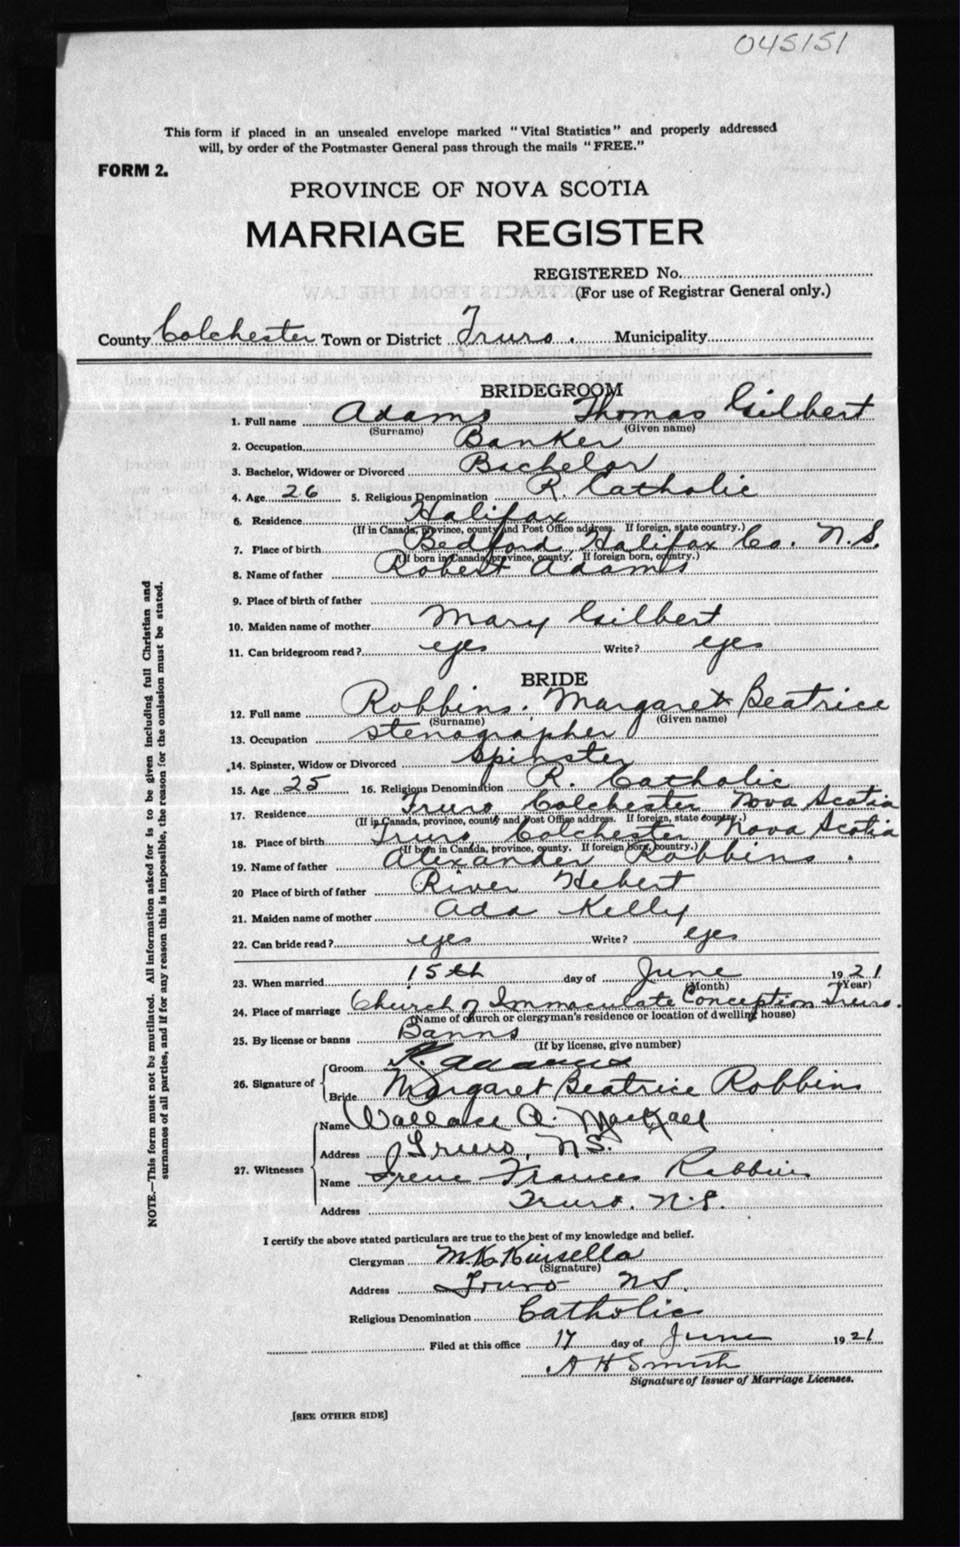 045151
This form if placed in an unsealed envelope marked "Vital Statistics" and properly addressed
will, by order of the Postmaster General pass through the mails "FREE."
FORM 2.
PROVINCE OF NOVA SCOTIA
MARRIAGE REGISTER
REGISTERED No.
(For use of Registrar General only.)
County Colchester Town or District Truro. Municipality
BRIDEGROOM
1. Full name Adams Thomas Gilbert
(Surname) (Given name)
2. Occupation Banker
3. Bachelor, Widower or Divorced Bachelor
4. Age 26 5. Religious Denomination R. Catholic
6. Residence Halifax
(If in Canada, province, county and Post Office address. If foreign, state country.)
7. Place of birth Bedford, Halifax Co. N.S.
(If born in Canada, province, county. If foreign born, country.)
8. Name of father Robert Adams
9. Place of birth of father
10. Maiden name of mother Mary Gilbert
11. Can bridegroom read? yes Write? yes
BRIDE
12. Full name Robbins. Margaret Beatrice
(Surname) (Given name)
13. Occupation stenographer
14. Spinster, Widow or Divorced Spinster
15. Age 25 16. Religious Denomination R. Catholic
17. Residence Truro Colchester Nova Scotia
(If in Canada, province, county and Post Office address. If foreign, state country.)
18. Place of birth Truro Colchester Nova Scotia
(If born in Canada, province, county. If foreign born, country.)
19. Name of father Alexander Robbins.
20 Place of birth of father River Hebert
21. Maiden name of mother Ada Kelly
22. Can bride read? yes Write? yes
23. When married 15th day of June 1921
(Month) (Year)
24. Place of marriage Church of Immaculate Conception Truro.
(Name of church or clergyman's residence or location of dwelling house)
25. By license or banns Banns
(If by license, give number)
26. Signature of Groom Adams
Bride Margaret Beatrice Robbins
27. Witnesses Name Wallace A.
Address Truro, N.S.
Name Irene Frances Robbins
Address Truro. N.S.
I certify the above stated particulars are true to the best of my knowledge and belief.
Clergyman Kinsella
(Signature)
Address Truro N.S.
Religious Denomination Catholic
Filed at this office 17 day of June 1921
A H Smith
Signature of Issuer of Marriage Licenses.
[SEE OTHER SIDE]
NOTE.—This form must not be mutilated. All information asked for is to be given including full Christian and
surnames of all parties, and if for any reason this is impossible, the reason for the omission must be stated.